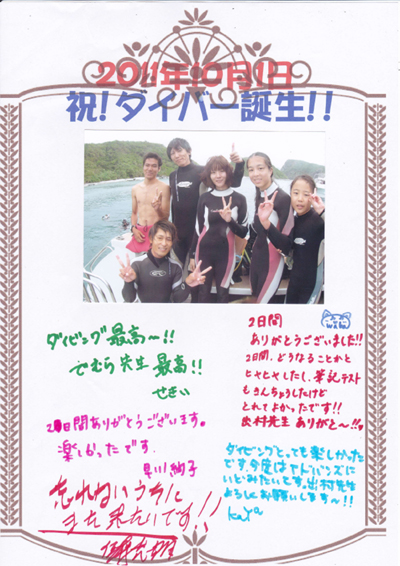 2011年10月1日
祝!ダイバー誕生!!
ダイビング最高〜!!
でむら先生最高!!
せきい
2日間ありがとうございます。
楽しかったです。
早川絢子
忘れないうちに
また来たいです!!
2日間
ありがとうございました!!
2日間、どうなることかと
ヒヤヒヤしたし、筆記テスト
もきんちょうしたけど
とれてよかったです!!
出村先生ありがと〜!!
ダイビングとっても楽しかった
です。今度はアドバンスに
いどみたいです。出村先生
よろしくお願いします〜!!
kaya